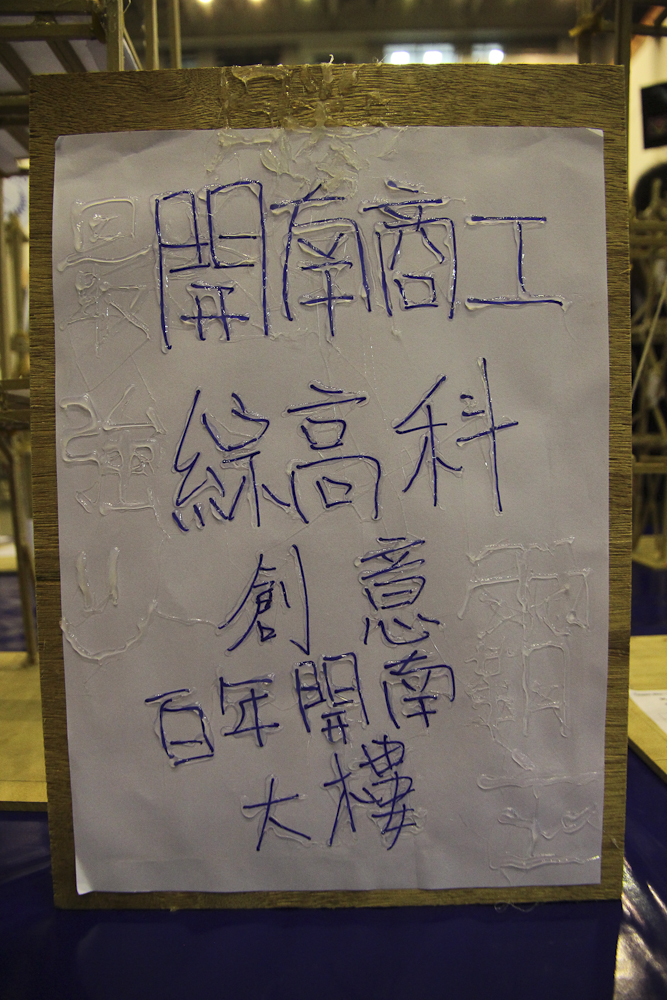 開南商工
綜高科
創意
百年開南
大樓